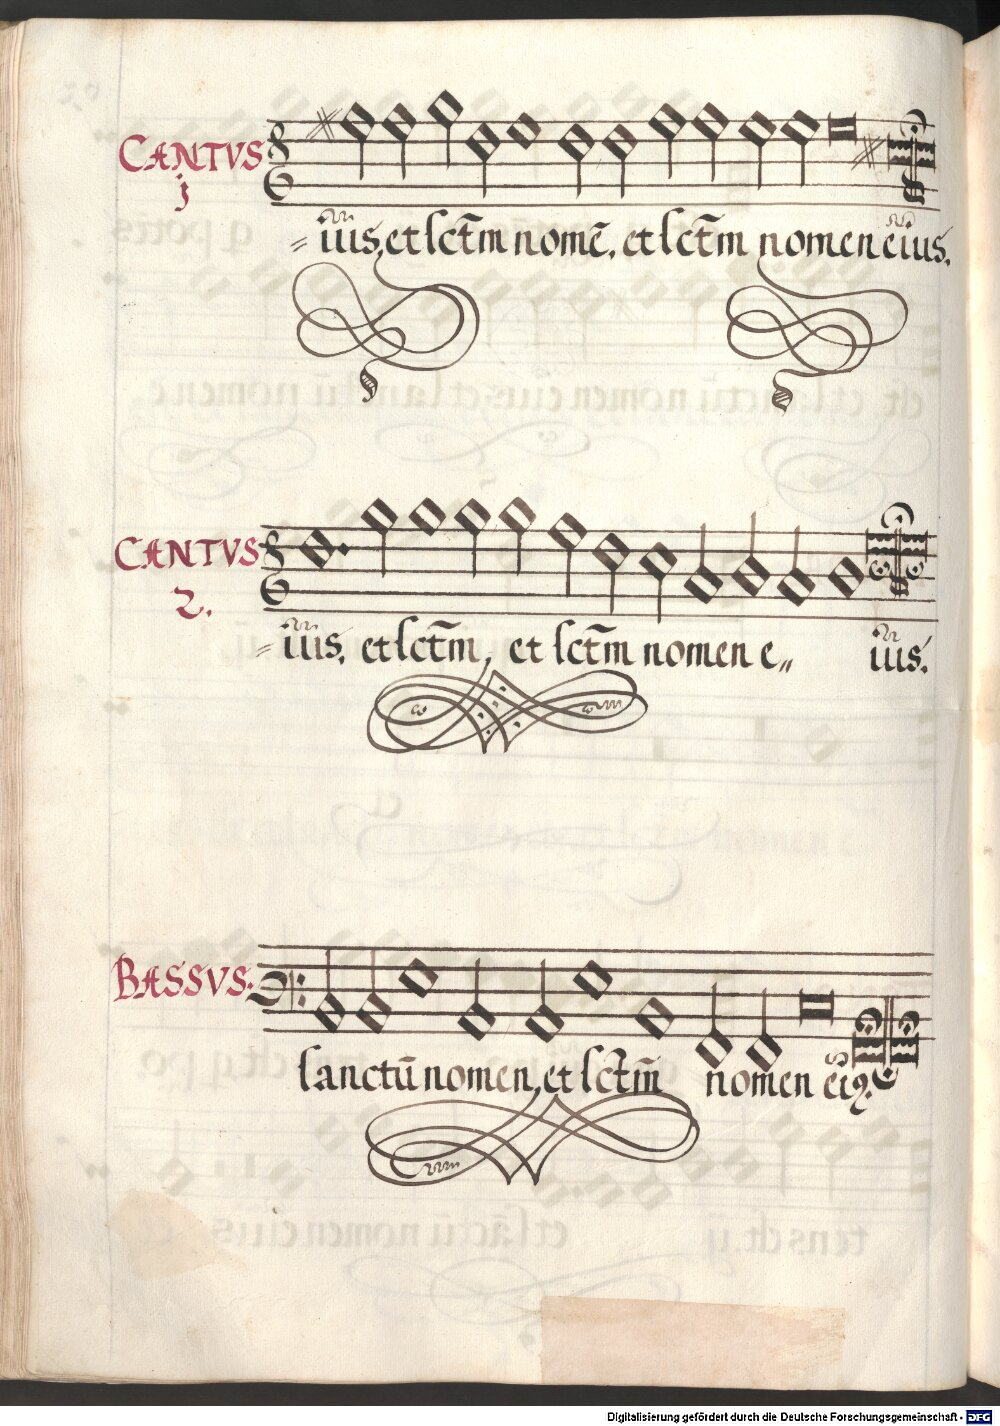 CANTVS
j
=iüs, et sctm̄ nomē, et sctm̄ nomen eius.
CANTVS
2.
=iüs, et sctm̄, et sctm̄ nomen e„ iüs.
BASSVS.
sanctū nomen, et sctm̄ nomen ei9.
Digitalisierung gefördert durch die Deutsche Forschungsgemeinschaft - DFG